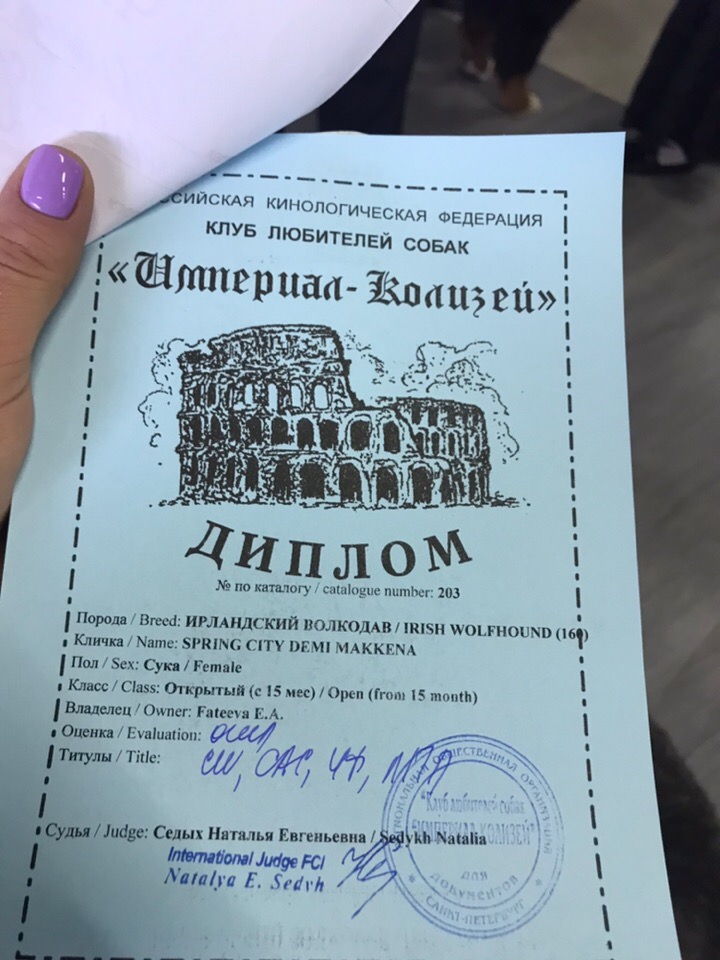 ССИЙСКАЯ КИНОЛОГИЧЕСКАЯ ФЕДЕРАЦИЯ
КЛУБ ЛЮБИТЕЛЕЙ СОБАК
«Империал-Колизей»
ДИПЛОМ
№ по каталогу / catalogue number: 203
Порода / Breed: ИРЛАНДСКИЙ ВОЛКОДАВ / IRISH WOLFHOUND (160)
Кличка / Name: SPRING CITY DEMI MAKKENA
Пол / Sex: Сука / Female
Класс / Class: Открытый (с 15 мес) / Open (from 15 month)
Владелец / Owner: Fateeva E.A.
Оценка / Evaluation: отл
Титулы / Title: CW, CAC,
Судья / Judge: Седых Наталья Евгеньевна / Sedykh Natalia
International Judge FCI
Natalya E. Sedyh
ОБЩЕСТВЕННАЯ
"Клуб любителей собак
"ИМПЕРИАЛ КОЛИЗЕЙ"
ДЛЯ
ДОКУМЕНТОВ
САНКТ-ПЕТЕРБУРГ